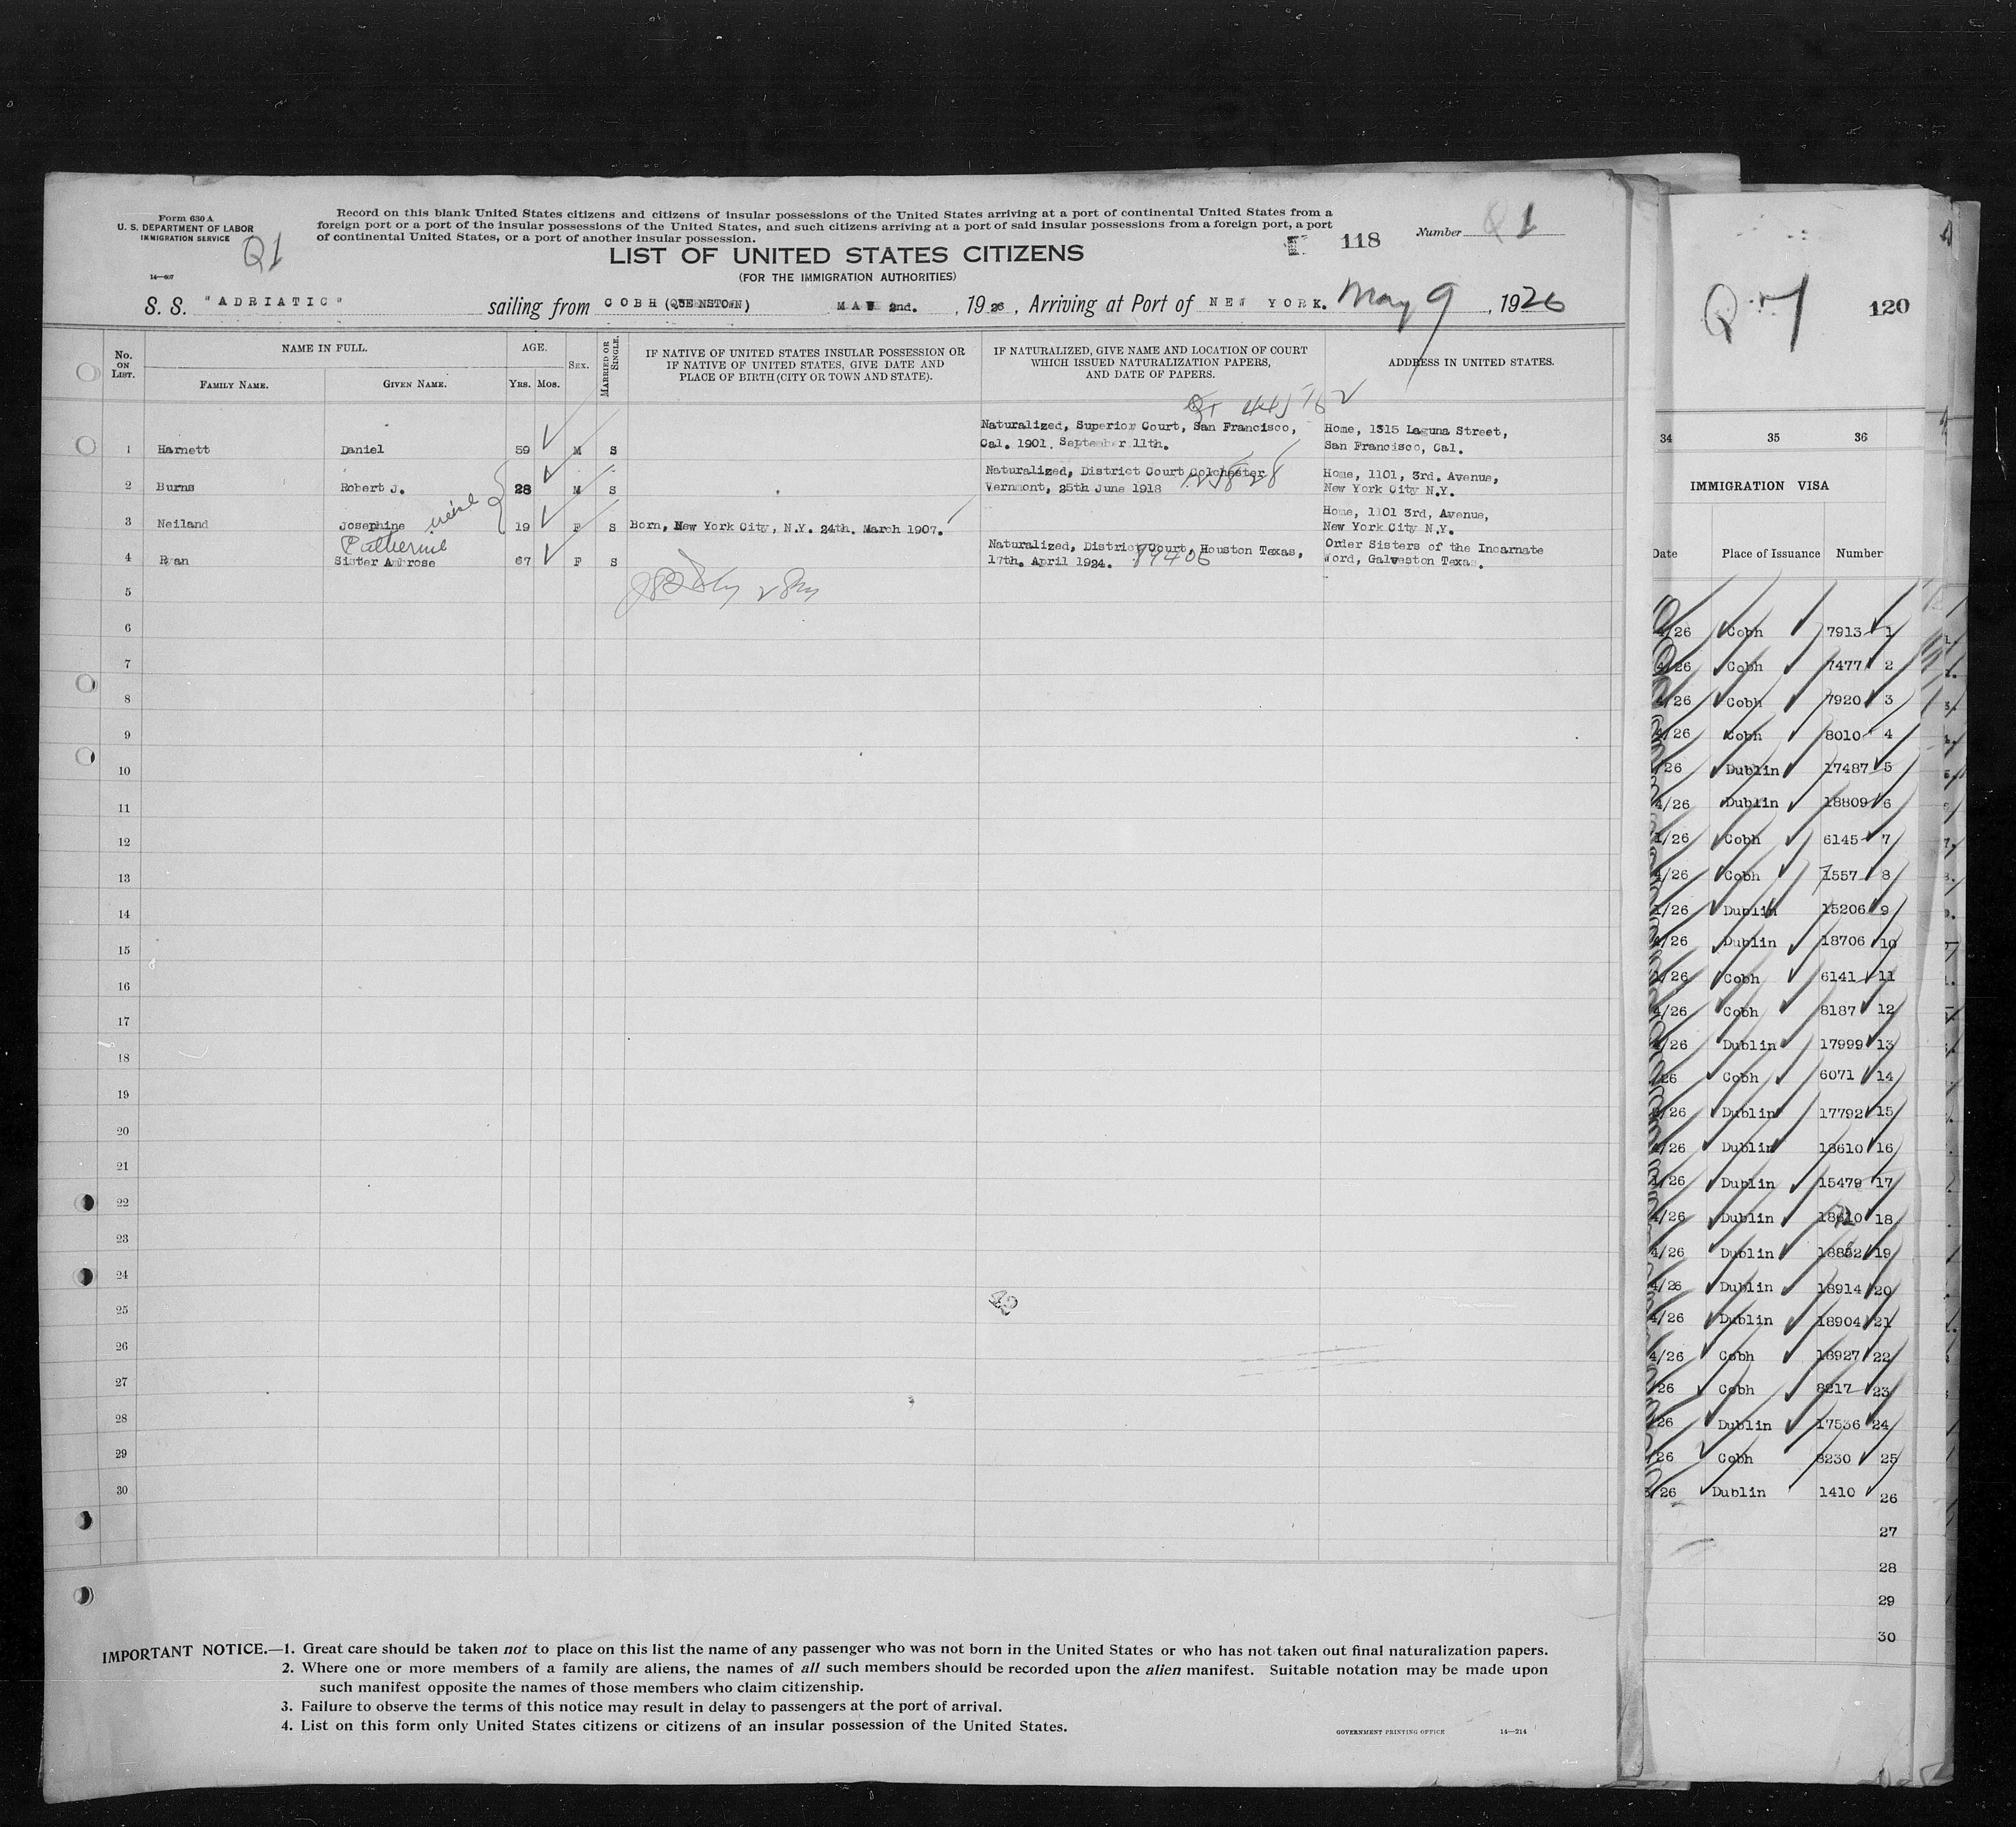 Form 630 A
U. S. DEPARTMENT OF LABOR
IMMIGRATION SERVICE
Q1
14—607
Record on this blank United States citizens and citizens of insular possessions of the United States arriving at a port of continental United States from a
foreign port or a port of the insular possessions of the United States, and such citizens arriving at a port of said insular possessions from a foreign port, a port
of continental United States, or a port of another insular possession.
118
Number Q1
LIST OF UNITED STATES CITIZENS
(FOR THE IMMIGRATION AUTHORITIES)
S. S. "ADRIATIC" sailing from COBH (QUEENSTOWN) MAY 2nd. , 1926, Arriving at Port of NEW YORK. May 9, 1926
No. ON LIST.
NAME IN FULL.
FAMILY NAME.
GIVEN NAME.
AGE.
YRS. MOS.
SEX.
MARRIED OR SINGLE.
IF NATIVE OF UNITED STATES INSULAR POSSESSION OR
IF NATIVE OF UNITED STATES, GIVE DATE AND
PLACE OF BIRTH (CITY OR TOWN AND STATE).
IF NATURALIZED, GIVE NAME AND LOCATION OF COURT
WHICH ISSUED NATURALIZATION PAPERS,
AND DATE OF PAPERS.
ADDRESS IN UNITED STATES.
Naturalized, Superior Court, San Francisco, Home, 1315 Laguna Street,
1 Harnett Daniel 59 M S Cal. 1901. September 11th. San Francisco, Cal.
Naturalized, District Court Colchester Home, 1101, 3rd. Avenue,
2 Burns Robert J. 28 M S Vernmont, 25th June 1918 New York City N.Y.
Home, 1101 3rd, Avenue,
3 Neiland Josephine niece 19 F S Born, New York City, N.Y. 24th. March 1907. New York City N.Y.
Catherine Naturalized, District Court, Houston Texas, Order Sisters of the Incarnate
4 Ryan Sister Ambrose 67 F S 17th. April 1924. 89406 Word, Galveston Texas.
5
6
7
8
9
10
11
12
13
14
15
16
17
18
19
20
21
22
23
24
25
26
27
28
29
30
42
IMPORTANT NOTICE.—1. Great care should be taken not to place on this list the name of any passenger who was not born in the United States or who has not taken out final naturalization papers.
2. Where one or more members of a family are aliens, the names of all such members should be recorded upon the alien manifest. Suitable notation may be made upon
such manifest opposite the names of those members who claim citizenship.
3. Failure to observe the terms of this notice may result in delay to passengers at the port of arrival.
4. List on this form only United States citizens or citizens of an insular possession of the United States.
GOVERNMENT PRINTING OFFICE 14—214
120
34 35 36
IMMIGRATION VISA
Date Place of Issuance Number
4/26 Cobh 7913 1
4/26 Cobh 7477 2
4/26 Cobh 7920 3
4/26 Cobh 8010 4
/26 Dublin 17487 5
4/26 Dublin 18809 6
1/26 Cobh 6145 7
4/26 Cobh 1557 8
1/26 Dublin 15206 9
4/26 Dublin 18706 10
1/26 Cobh 6141 11
4/26 Cobh 8187 12
/26 Dublin 17999 13
/26 Cobh 6071 14
/26 Dublin 17792 15
/26 Dublin 18610 16
/26 Dublin 15479 17
4/26 Dublin 18610 18
4/26 Dublin 18852 19
4/26 Dublin 18914 20
4/26 Dublin 18904 21
4/26 Cobh 18927 22
26 Cobh 8217 23
26 Dublin 17536 24
26 Cobh 8230 25
/26 Dublin 1410 26
27
28
29
30